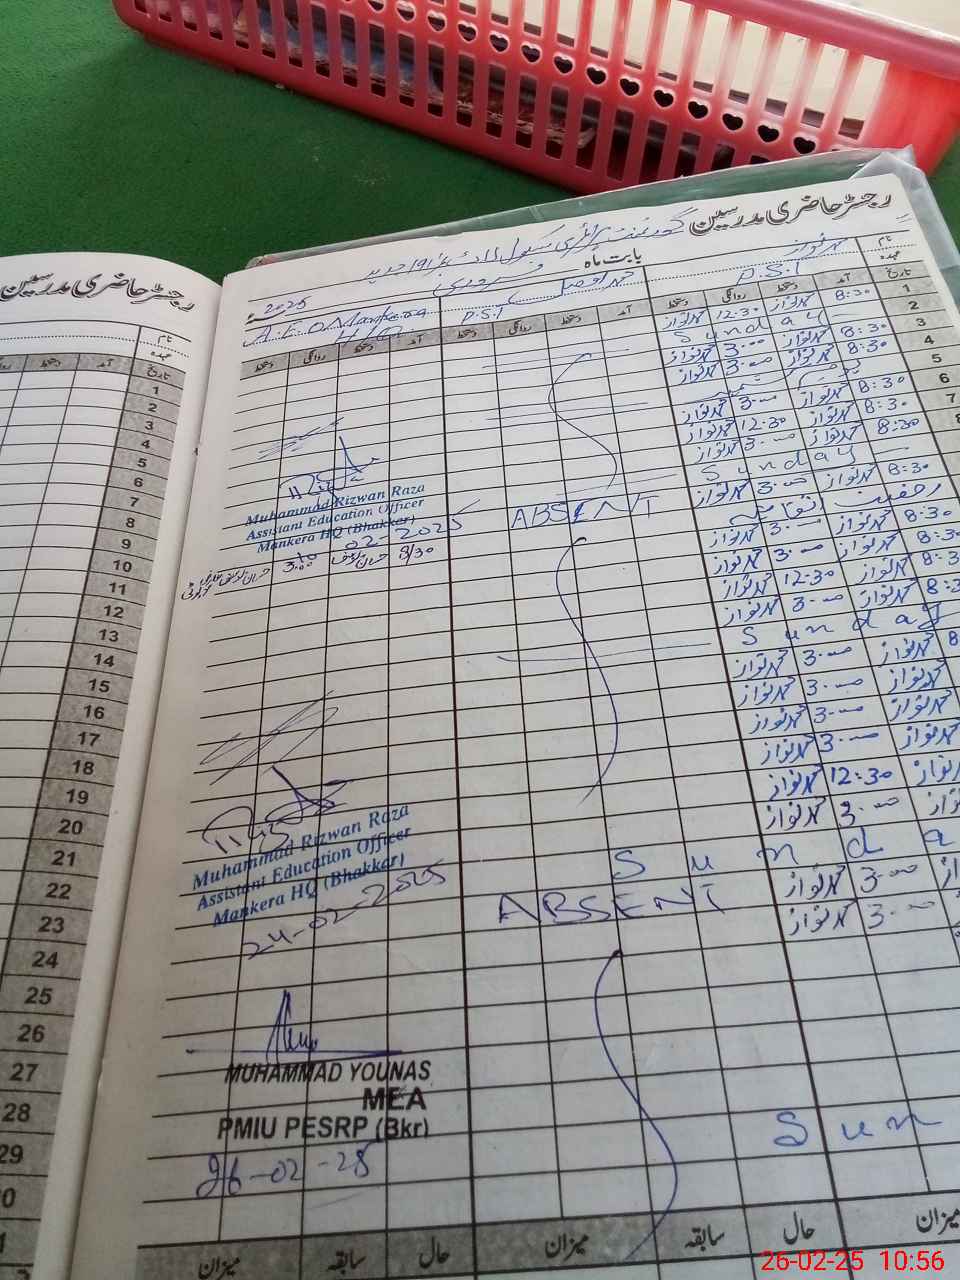 رجسٹر حاضری مدرسین
گورنمنٹ پرائمری سکول
بابت ماہ فروری 2025ء
نام
عہدہ
محمد نواز
P.S.T
P.S.T
A.E.O Mankera
H.Q
تاریخ آمد دستخط روانگی دستخط آمد دستخط روانگی دستخط آمد دستخط روانگی دستخط
1 8:30 محمد نواز 12:30 محمد نواز
2 Sunday
3 8:30 محمد نواز 3:00 محمد نواز
4 8:30 محمد نواز 3:00 محمد نواز
5
6 8:30 محمد نواز 3:00 محمد نواز
7 8:30 محمد نواز 12:30 محمد نواز
8:30 محمد نواز 3:00 محمد نواز
Sunday
8:30 محمد نواز 3:00 محمد نواز
ABSENT
Muhammad Rizwan Raza
Assistant Education Officer
Mankera HQ (Bhakkar)
10-02-2025
8/30
3:00
محمد نواز 3:00 محمد نواز
محمد نواز 3:00 محمد نواز
محمد نواز 12:30 محمد نواز
محمد نواز 3:00 محمد نواز
Sunday
محمد نواز 3:00 محمد نواز
محمد نواز 3:00 محمد نواز
محمد نواز 3:00 محمد نواز
محمد نواز 3:00 محمد نواز
محمد نواز 12:30 محمد نواز
3:00 محمد نواز
Sunda
ABSENT
3:00 محمد نواز
3:00 محمد نواز
Muhammad Rizwan Raza
Assistant Education Officer
Mankera HQ (Bhakkar)
24-02-2025
MUHAMMAD YOUNAS
MEA
PMIU PESRP (Bkr)
26-02-25
Sun
میزان حال سابقہ میزان حال سابقہ میزان
رجسٹر حاضری مدرسین
نام
عہدہ
تاریخ آمد دستخط
1
2
3
4
5
6
7
8
9
10
11
12
13
14
15
16
17
18
19
20
21
22
23
24
25
26
27
28
29
26-02-25 10:56